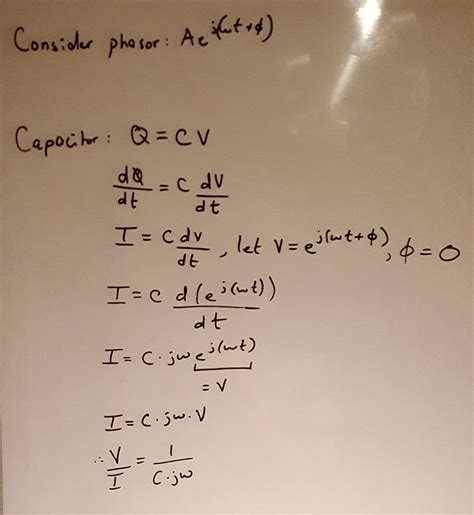 Consider phasor: Ae^j(ωt+ϕ)
Capacitor: Q = CV
dQ/dt = C dV/dt
I = C dv/dt, let V = e^j(ωt+ϕ), ϕ = 0
I = C d(e^j(ωt))/dt
I = C·jω e^j(ωt)
= V
I = C·jω·V
∴ V/I = 1/C·jω